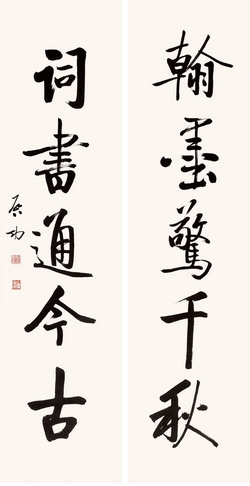 翰墨驚千秋
詞書通今古
啟功